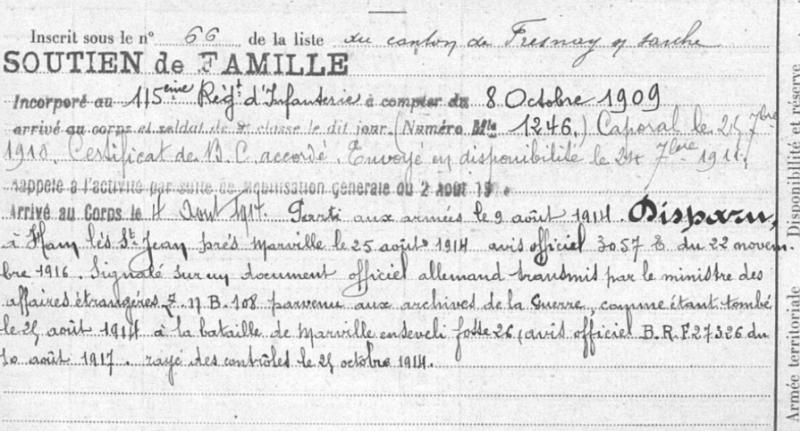 Inscrit sous le n° 66 de la liste du canton de Fresnay s/ sarthe
SOUTIEN de FAMILLE
Incorporé au 115ème Régt d'Infanterie à compter du 8 Octobre 1909
arrivé au corps et soldat de 2e classe le dit jour. (Numéro Mle 1246.) Caporal le 25 7bre
1910. Certificat de B.C. accordé. Envoyé en disponibilité le 24 7bre 1911.
Rappelé à l'activité par suite de mobilisation générale du 2 Août 19
Arrivé au Corps le 4 Août 1914. Parti aux armées le 9 août 1914. Disparu,
à Ham lés St Jean prés Marville le 25 août 1914 avis officiel 3057 E. du 22 novem-
bre 1916. Signalé sur un document officiel allemand transmis par le ministre des
affaires étrangères, Z. N B. 108 parvenu aux archives de la Guerre, comme étant tombé
le 25 août 1914 à la bataille de Marville enseveli fosse 26, avis officiel B.R.F. 27326 du
10 août 1917. rayé des contrôles le 25 octobre 1914.
Disponibilité et réserve
Armée territoriale